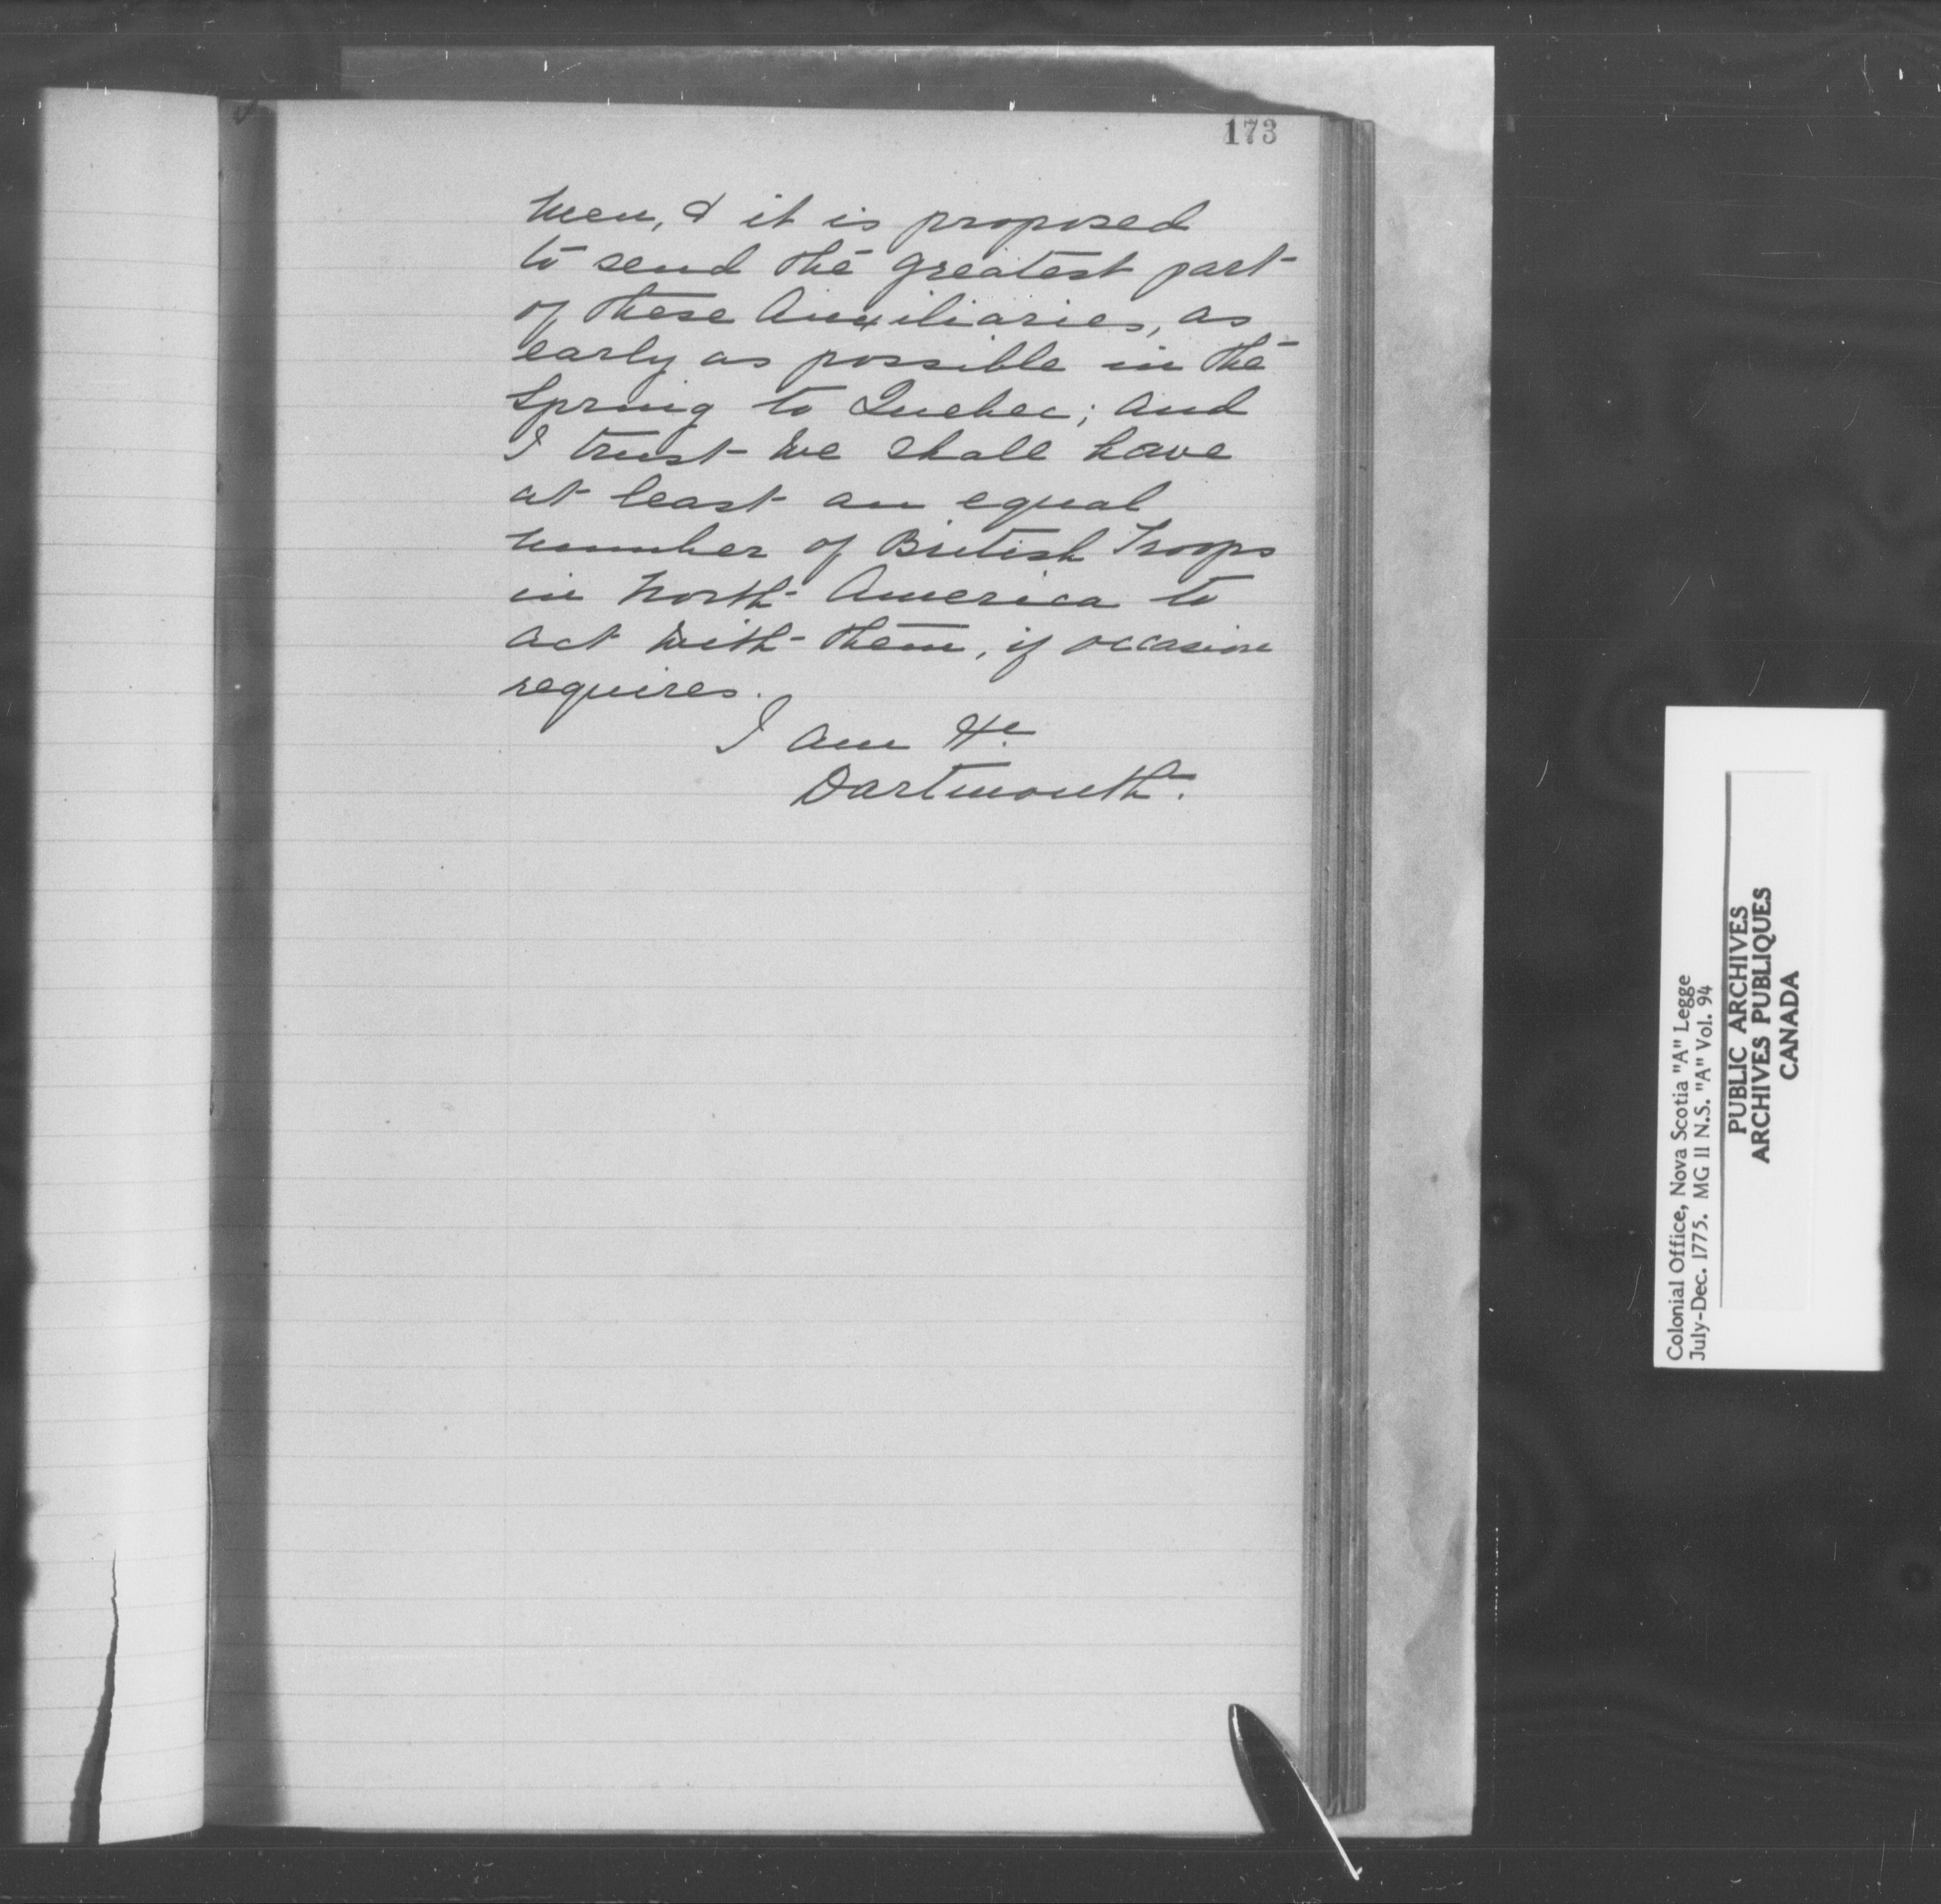 173
men, & it is proposed
to send the greatest part
of these Auxiliaries, as
early as possible in the
Spring to Quebec; and
I trust we shall have
at least an equal
number of British Troops
in North America to
act with them, if occasion
requires.
I am &c
Dartmouth.
Colonial Office, Nova Scotia "A" Legge
July-Dec. 1775. MG 11 N.S. "A" Vol. 94
PUBLIC ARCHIVES
ARCHIVES PUBLIQUES
CANADA